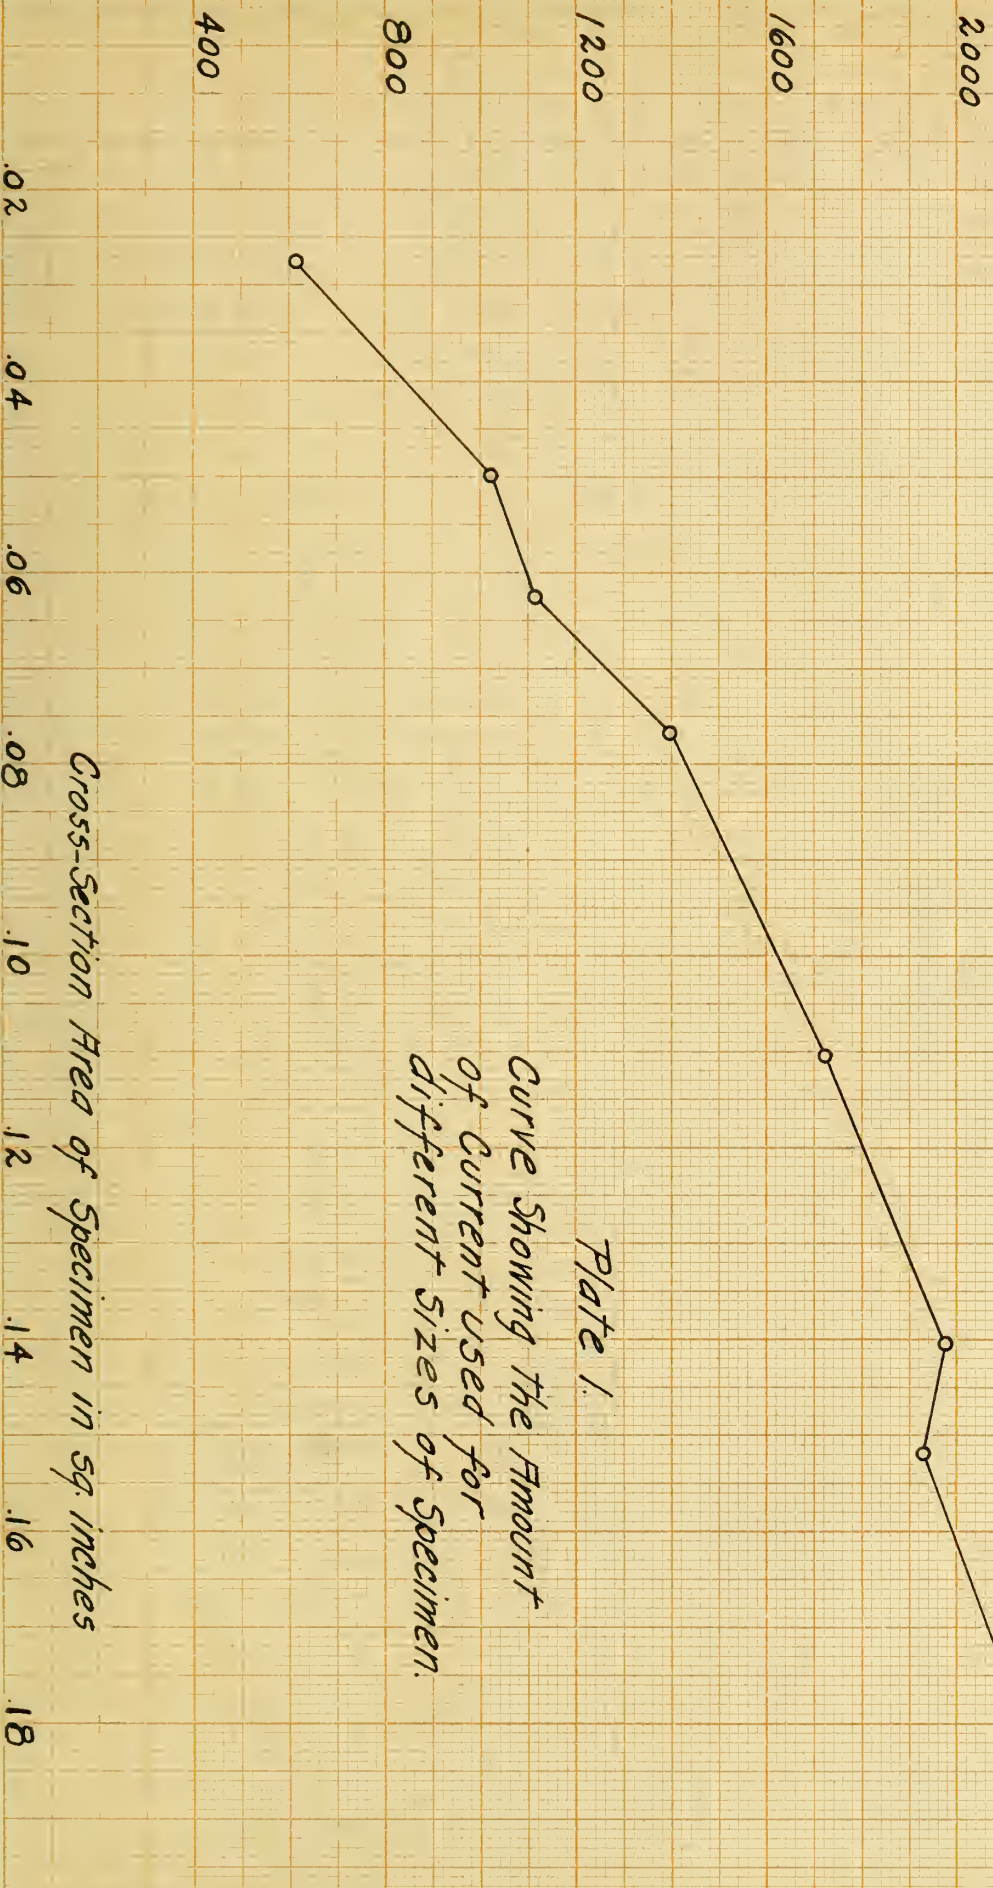 2000
1600
1200
800
400
Plate 1.
Curve Showing the Amount
of Current used for
different Sizes of Specimen.
.02 .04 .06 .08 .10 .12 .14 .16 .18
Cross-Section Area of Specimen in sq. inches